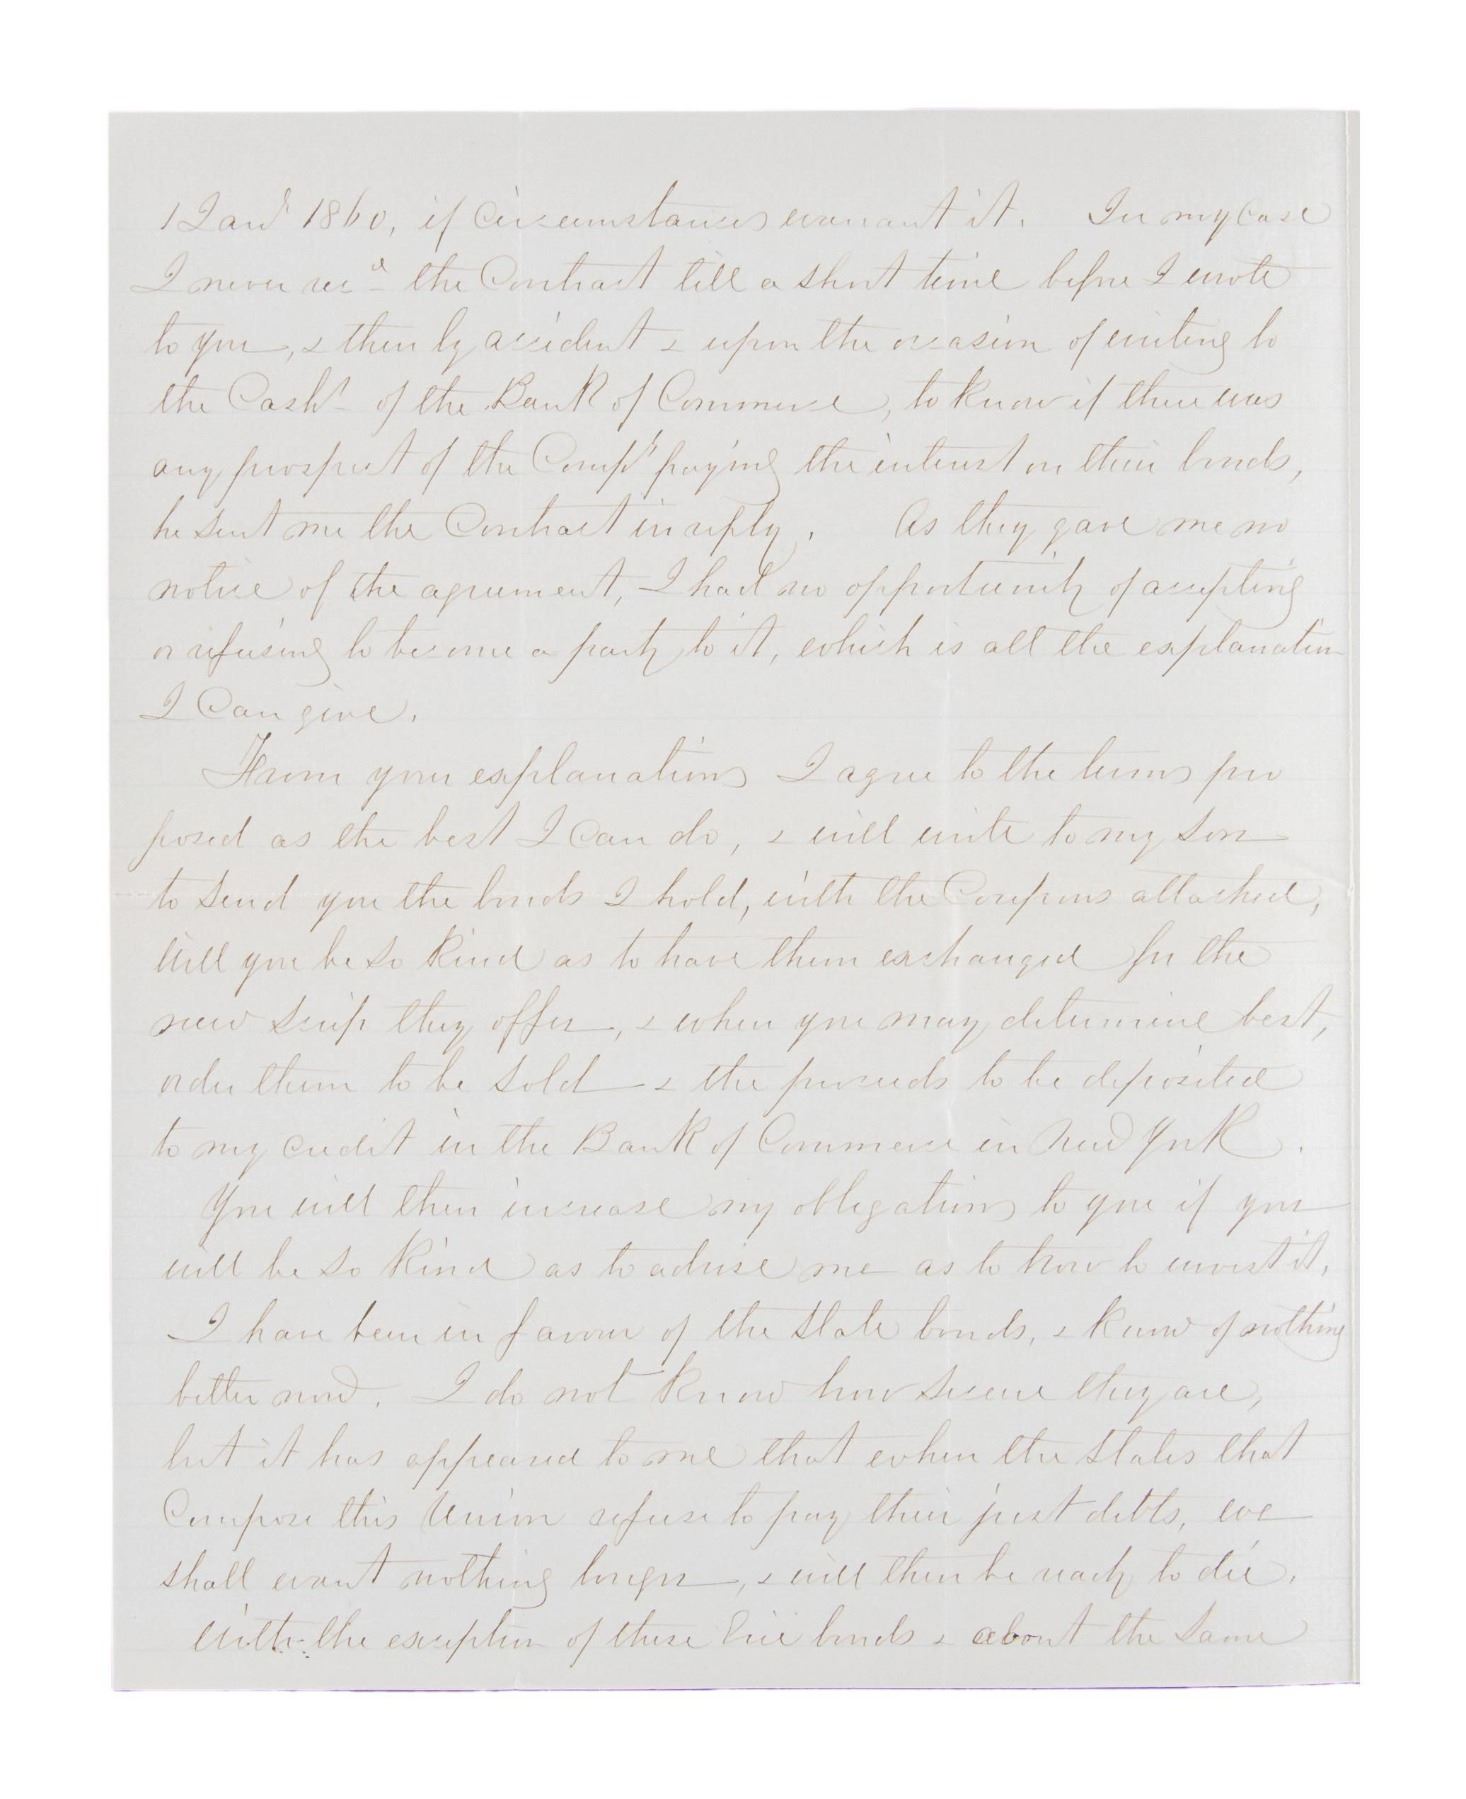 1 Jany 1860, if circumstances warrant it. In my case
I never recd the Contract till a short time before I wrote
to you, & then by accident & upon the occasion of writing to
the Cashr of the Bank of Commerce, to know if there was
any prospect of the Compy paying the interest on their bonds,
he sent me the Contract in reply. As they gave me no
notice of the agreement, I had no opportunity of accepting
or refusing to become a party to it, which is all the explanation
I can give.
From your explanations I agree to the terms pro
posed as the best I can do, & will write to my son
to send you the bonds I hold, with the Coupons attached,
Will you be so kind as to have them exchanged for the
new scrip they offer, & when you may determine best,
order them to be sold & the proceeds to be deposited
to my credit in the Bank of Commerce in New York.
You will then increase my obligations to you if you
will be so kind as to advise me as to how to invest it.
I have been in favour of the State bonds, & know of nothing
better now. I do not know how secure they are,
but it has appeared to me that when the States that
Compose this Union refuse to pay their just debts, we
shall want nothing longer, & will then be ready to die.
With the exception of these Erie bonds & about the same